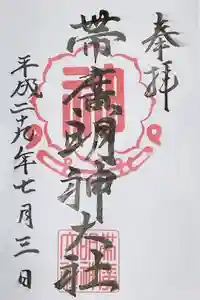 奉拝
帯廣明神大社
平成二十九年七月三日